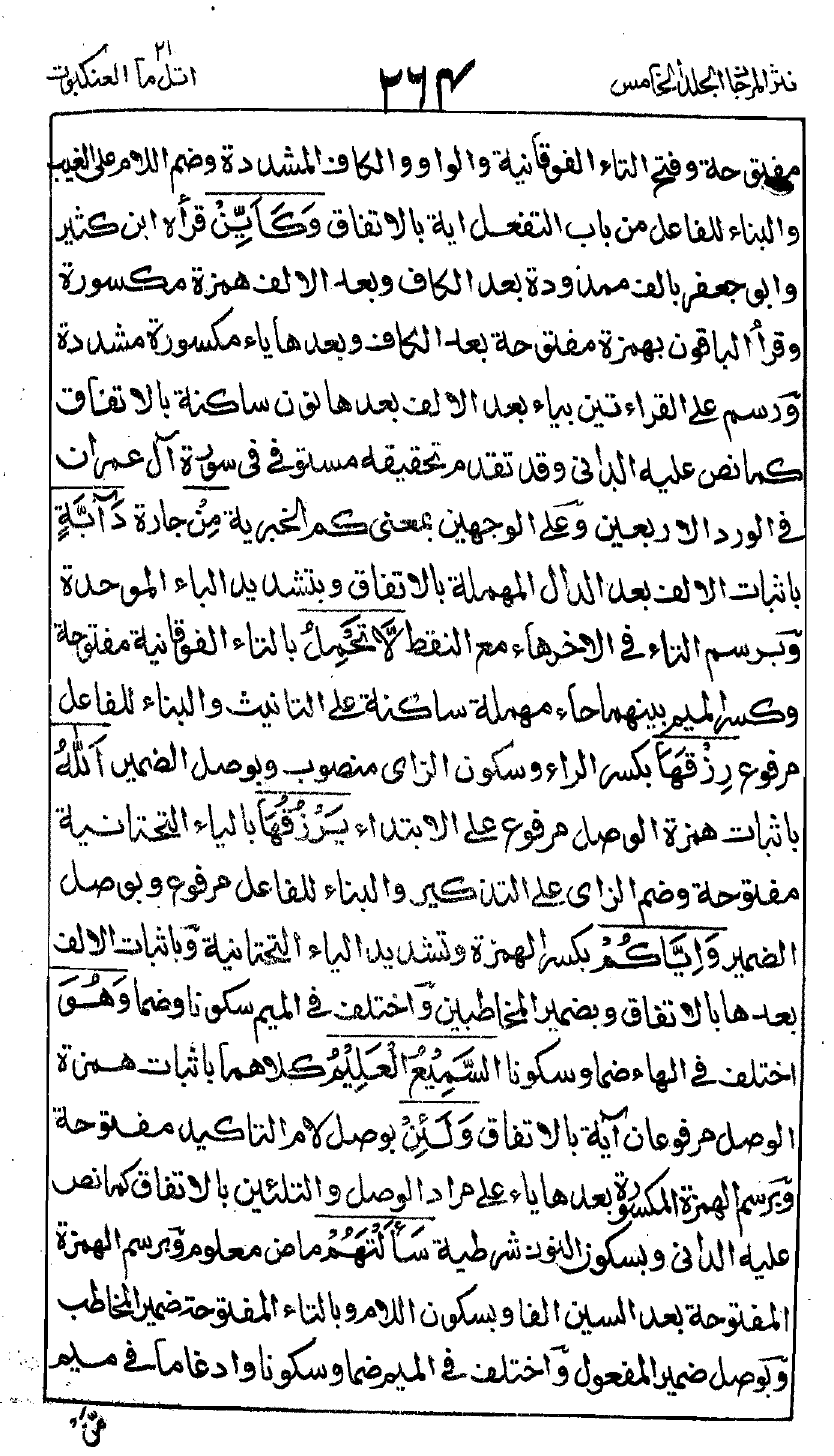 نثر المرجان المجلد الخامس
٢٦٤
اتل ما ٢١ العنكبوت
مفتوحة وفتح التاء الفوقانية والواو والكاف المشددة وضم اللام على الغيب
والبناء للفاعل من باب التفعل اية بالاتفاق وَكَاَيِّنْ قرأه ابن كثير
وابو جعفر بالف ممدودة بعد الكاف وبعد الالف همزة مكسورة
وقرأ الباقون بهمزة مفتوحة بعد الكاف وبعدها ياء مكسورة مشددة
وّرسم على القراءتين بياء بعد الالف بعدها نون ساكنة بالاتفاق
كما نص عليه الدانى وقد تقدم تحقيقه مستوفى فى سورة آل عمران
فى الورد الاربعين وّعلى الوجهين بمعنى كم الخبرية مِنْ جارة دَآبَّةٍ
باثبات الالف بعد الدال المهملة بالاتفاق وبتشديد الباء الموحدة
وّبرسم التاء فى الاخر هاء مع النقط لَّا تَحْمِلُ بالتاء الفوقانية مفتوحة
وكسر الميم بينهما حاء مهملة ساكنة على التانيث والبناء للفاعل
مرفوع رِزْقَهَا بكسر الراء وسكون الزاى منصوب وبوصل الضمير اَللّٰهُ
باثبات همزة الوصل مرفوع على الابتداء يَرْزُقُهَا بالياء التحتانية
مفتوحة وضم الزاى على التذكير والبناء للفاعل مرفوع وبوصل
الضمير وَاِيَّاكُمْ بكسر الهمزة وتشديد الياء التحتانية وّباثبات الالف
بعدها بالاتفاق وبضمير المخاطبين وّاختلف فى الميم سكونا وضما وَهُوَ
اختلف فى الهاء ضما وسكونا السَّمِيْعُ الْعَلِيْمُ كلاهما باثبات همزة
الوصل مرفوعان آية بالاتفاق وَلَئِنْ بوصل لام التاكيد مفتوحة
وّبرسم الهمزة المكسورة بعدها ياء على مراد الوصل والتليين بالاتفاق كما نص
عليه الدانى وبسكون النون شرطية سَأَلْتَهُمْ ماض معلوم وّبرسم الهمزة
المفتوحة بعد السين الفا وبسكون اللام وبالتاء المفتوحة ضمير المخاطب
وّبوصل ضمير المفعول وّاختلف فى الميم ضما وسكونا وادغاما فى ميم